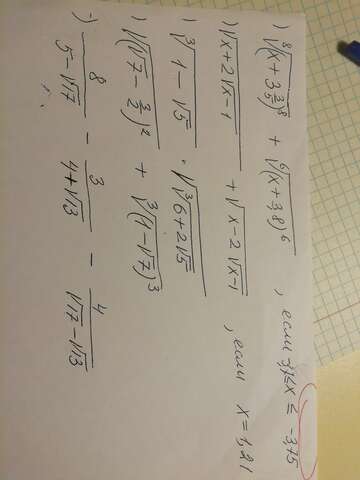 ) ⁸√(x + 3 3/5)⁸ + ⁶√(x + 3,8)⁶ , если x = -3,75
) √(x + 2√(x-1)) + √(x - 2√(x-1)) , если x = 1,21
) ³√(1 - √5) · √(³√(6 + 2√5))
) √((√7 - 3/2)²) + ³√((1 - √7)³)
-) 8/(5 - √17) - 3/(4 + √13) - 4/(√17 - √13)